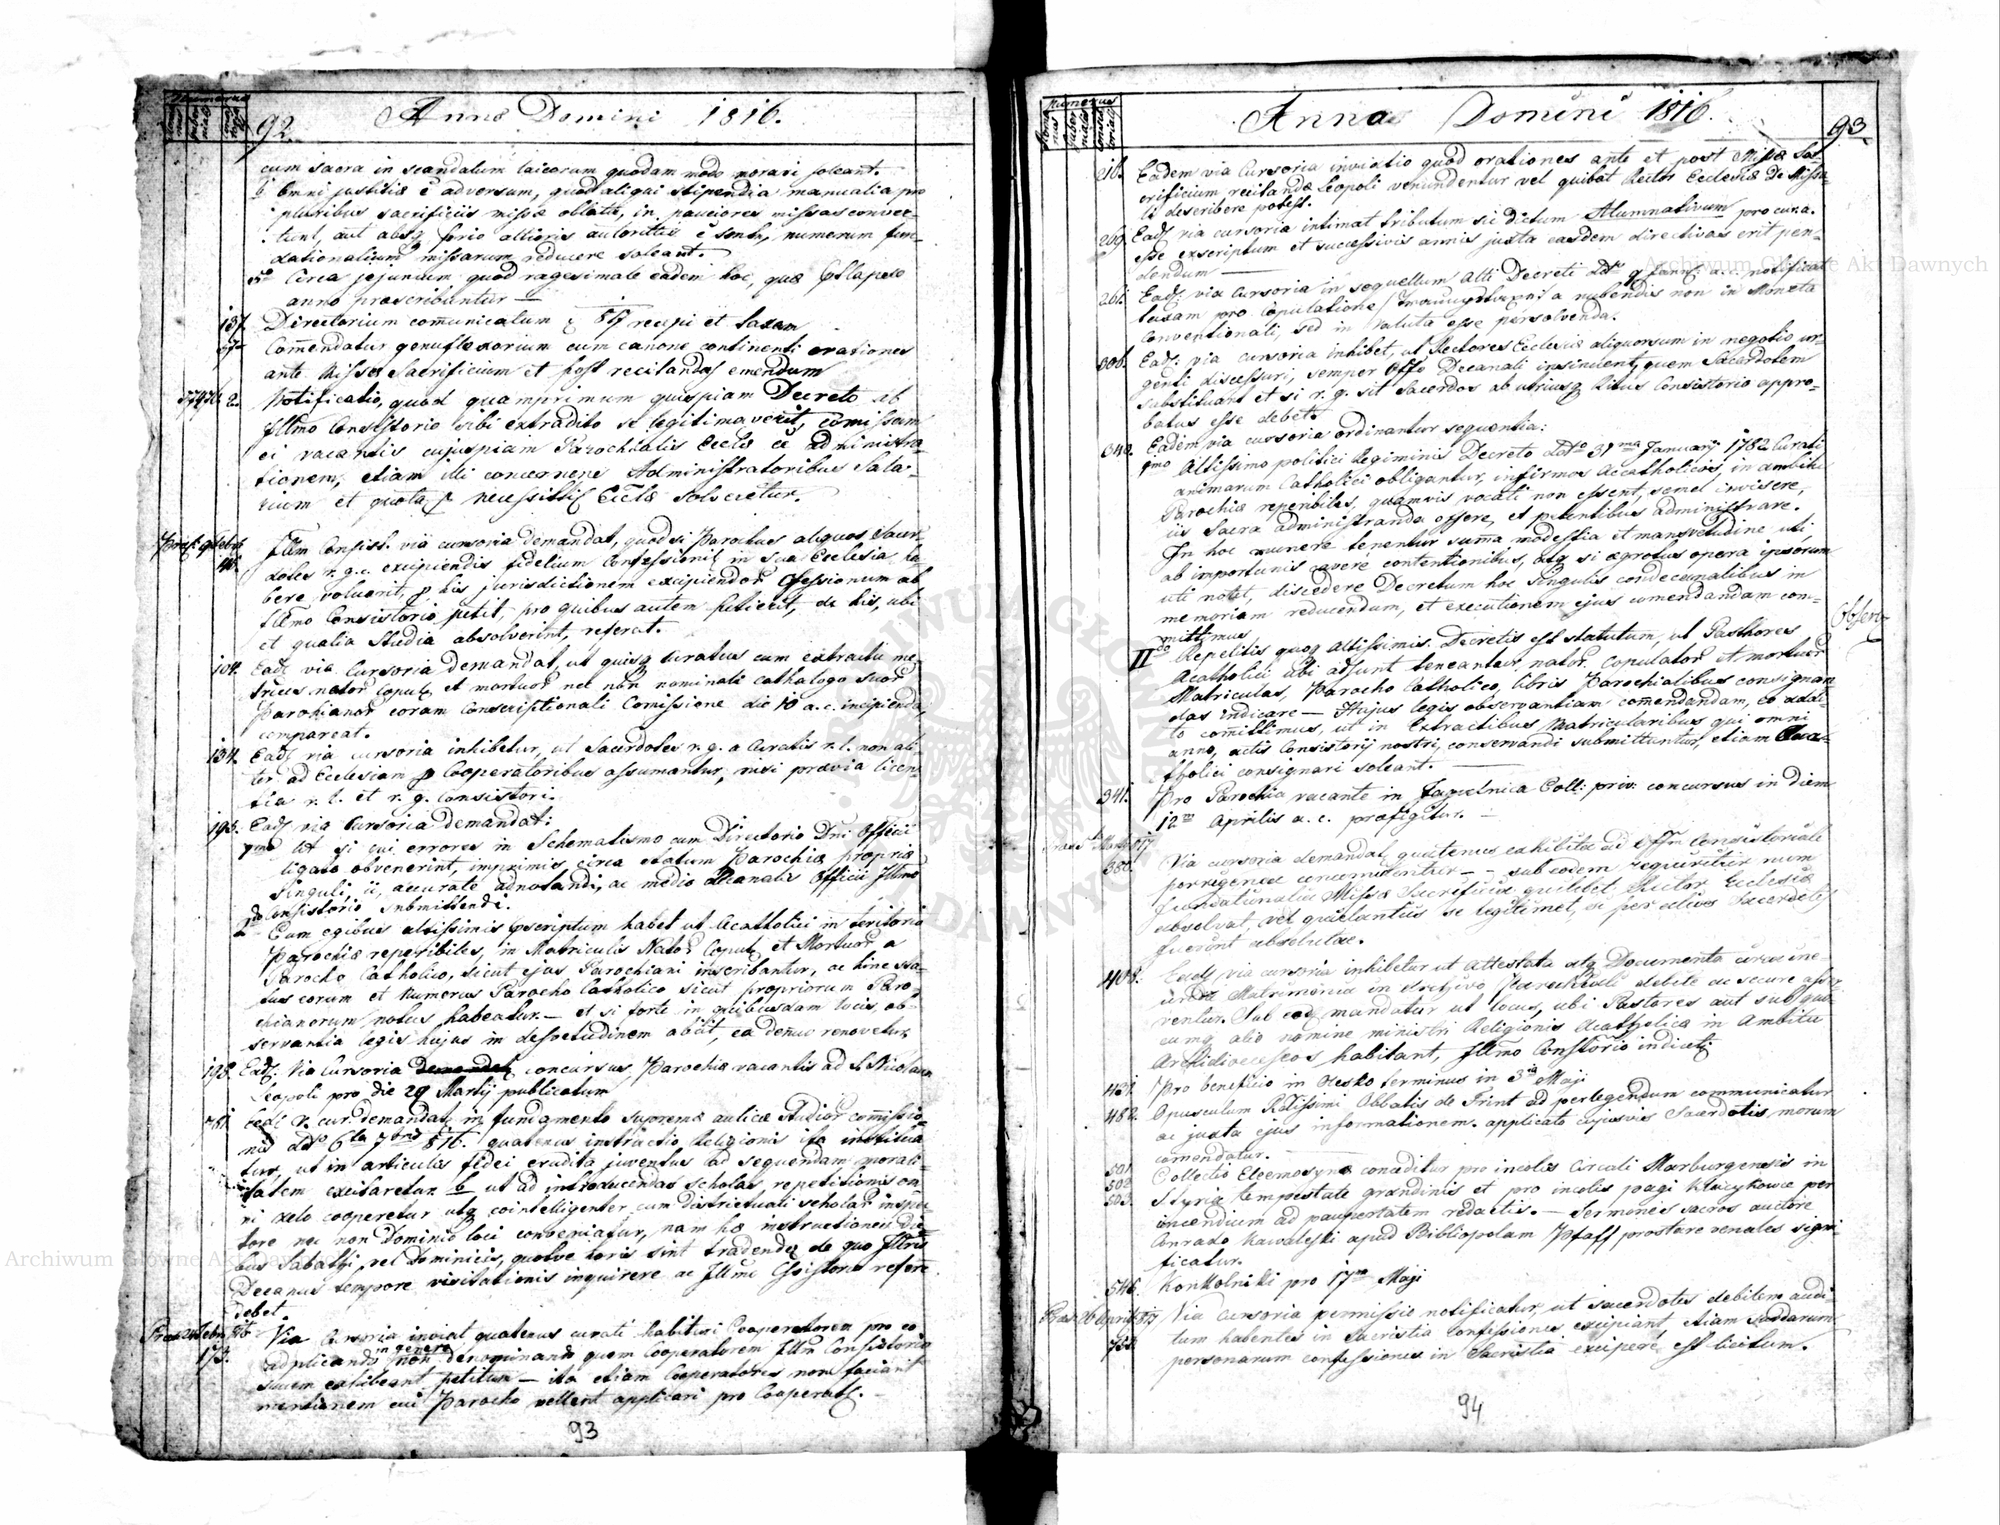 92. Anno Domini 1816.
cum sacra in scandalum laicorum quodam modo morari soleant.
Omni justitiæ ē adversum, quod aliqui stipendia manualia pro
pluribus sacrificiis missæ oblata, in pauciores missas conver-
tunt, aut absq altioris numerum fun-
dationalium missarum reducere soleant.
Circa jejunium quadragesimale eadem hoc, quæ elapso
anno præscribuntur —
137. Directorium com̄unicatum recepi et taxam
Com̄endatur genuflexorium cum canone continenti orationes
ante Missæ Sacrificium et post recitandas emendum
2. Notificatio, quod quamprimum quispiam Decreto ab
Illmo Consistorio sibi extradito se legitimaverit, com̄issam
ei vacantis cujuspiam Parochialis Eccle ee administra-
tionem, etiam illi concernens Administratoribus Sala-
rium et quota necessittis Eccle solvetur.
Illm Consist. via cursoria demandat, quod si Parochus aliquos Sacer-
dotes r. g. c. excipiendis fidelium Confessionib in sua Ecclesia ha-
bere voluerit, p his jurisdictionem excipiendor Cfessionum ab
Illmo Consistorio petit, pro quibus autem petierit, de his, ubi
et qualia Studia absolverint, referat.
104. Ead via Cursoria demandat, ut quisq Curatus cum extractu me-
trices nator Copul et mortuor nec non nominali cathalogo suor
Parochianor coram Conscriptionali Com̄issione die 10 a. c. incipienda,
compareat.
134. Ead via cursoria inhibetur, ut Sacerdotes r. g. a Curatis r. l. non ali-
ter ad Ecclesiam p Cooperatoribus assumantur, nisi prævia licen-
tia r. l. et r. g. Consistori.
195. Ead via Cursoria demandat:
1mo Ut si cui errores in Schematismo cum Directorio Dni Officii
ligato obvenerint, imprimis circa statum Parochiæ propriæ
singuli, ii, accurate adnotandi, ac medio Decanalis Officii Illmo
Consistorio submittendi.
2do Cum egibus altissimis pscriptum habet ut Acatholici in teritorio
Parochiæ reperibiles, in Matriculis Nator Copul et Mortuor a
Parocho Catholico, sicut ejus Parochiani inscribantur, ac hinc sta-
tus eorum et Numerus Parocho Catholico sicut propriorum Paro-
chianorum notus habeatur. — et si forte in quibusdam locis, ob-
servantia legis hujus in desvetudinem abiit, ea denuo renovetur.
198. Ead: Via Cursoria concursus, Parochiæ vacantis ad S. Nicolaum
Leopoli pro die 29 Martij publicatum
781. Ead v. cur. demandat, in fundamento supremæ aulicæ studior com̄issio-
nis ddo 6ta 7bris 816. quatenus instructio Religionis ita institua-
tur, ut in articulis fidei erudita juventus ad sequendam morali-
tatem excitaretur. b ut ad introducendas scholas repetitionis om-
ni zelo cooperetur atq cointelligenter cum districtuali scholar inspec-
tore nec non Dominio loci conveniatur, nam hæ instructiones die-
bus Sabathi, vel Dominicis, quotve horis sint tradendæ de quo Illtris
Decanus tempore visitationis inquirere ac Illmo Cssistorio referre
debet.
173. Via Cursoria inviat quatenus curati habituri Cooperatorem pro eo
adplicando in genere non denominando quem Cooperatorem Illm Consistorium
suum exhibeant petitum — ita etiam Cooperatores non faciant
mentionem cui Parocho vellent applicari pro Cooperat. —
93
Anno Domini 1816. 93
216. Eadem via Cursoria inviatio quod orationes ante et post Missæ Sa-
crificium recitandæ Leopoli venundentur vel quilibet Rector Ecclesiæ De Missa-
li describere potest.
269. Ead: via cursoria intimat tributum sic dictum Alumnativum pro cur. a.
esse exscriptum et successivis annis juxta easdem directivas erit pen-
dendum —
261. Ead: via Cursoria in sequellum Alti Decreti ddto 9 Janr: a. c. notificat
taxam pro Copulatione a nubendis non in Moneta
Conventionali, sed in Valuta esse persolvenda.
306. Ead: via cursoria inhibet, ut Rectores Ecclesiæ aliquorsum in negotio ur-
genti discessuri, semper Offo Decanali insinuent, quem Sacerdotem
substituant et si r. g. sit Sacerdos ab utriusq Ritus Consistorio appro-
batus esse debet.
340. Eadem via cursoria ordinantur sequentia:
1mo Altissimo politici Regiminis Decreto ddto 31ma Januarij 1782 Curati
animarum Catholici obligantur, infirmos Accatholicos, in ambitu
Parochiæ reperibiles, quamvis vocati non essent, semel invisere,
iis Sacra administranda offere, et petentibus administrare.
In hoc munere tenentur suma modestia et mansvetudine uti,
ab importunis cavere contentionibus, atq si ægrotus opera ipsorum
uti nollet, discedere Decretum hoc singulis condecanalibus in
memoriam reducendum, et executionem ejus comendandam com-
mittimus
Observ
IIdo Repetitis quoq Altissimis Decretis est statutum, ut Pasthores
Acatholici ubi adsunt teneantur, nator. Copulator et mortuor
Matriculas, Parocho Catholico, libris Parochialibus consignan-
das indicare — Hujus legis observantiam com̄endandam, eo addi-
to comittimus, ut in Extractibus Matricularibus qui omni
anno, actis Consistorij nostri, conservandi submittuntur, etiam Aca-
tholici consignari soleant. —
341. Pro Parochia vacante in Jagielnica Coll: priv. concursus in diem
12m Aprilis a. c. præfigitur. —
380. Via cursoria demandat, quatenus exhibita ad Offm Consistoriale
porrigenda — sub eodem requiritur num
fundationalia Missæ Sacrificia quilibet Rector Ecclesiæ
absolvat, vel quietantiis se legitimet, si per alios Sacerdotes
fuerint absolutæ.
408. Ead via cursoria inhibetur ut Attestata atq Documenta circa ine-
unda Matrimonia in Archivo Parochiali debite ac secure asser-
ventur. Sub eod mandatur ut locus, ubi Pastores aut sub quo-
cumq alio nomine ministri Religionis Acatholicæ in Ambitu
Archidioeceseos habitant, Illmo Constorio indicet.
431. Pro beneficio in Olesko terminus in 3ia Maji
482. Opusculum Rdissimi Abbatis de Trint ad perlegendum communicatur
ac juxta ejus informationem applicatio cujusvis Sacerdotis, morum
comendatur. —
501. Collectio Eleemosynæ conceditur pro incolis Circuli Marburgensis in
502. Styria tempestate grandinis et pro incolis pagi Kluczykowce per
503. incendium ad paupertatem redactis. — Sermones sacros auctore
Conrado Kawalski apud Bibliopolam Pfaff prostare venales signi-
ficatur.
546. Konkolniki pro 17ma Maji
Via Cursoria permissio notificatur, ut sacerdotes debilem audi-
tum habentes in Sacristia Confessiones excipiant etiam Suddarum
personarum confessiones in Sacristia excipere est licitum.
94
Archiwum Główne Akt Dawnych